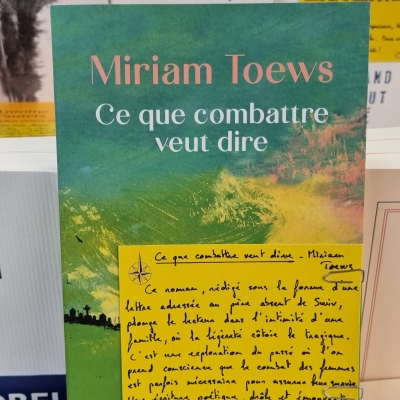 Miriam Toews
Ce que combattre
veut dire
Ce que combattre veut dire - Miriam
Toews
Ce roman, rédigé sous la forme d'une
lettre adressée au père absent de Swiv,
plonge le lecteur dans l'intimité d'une
famille, où la légèreté côtoie le tragique.
C'est une exploration du passé où l'on
prend conscience que le combat des femmes
est parfois nécessaire pour assurer leur survie
Une écriture poétique, drôle et émouvante
AND
UT